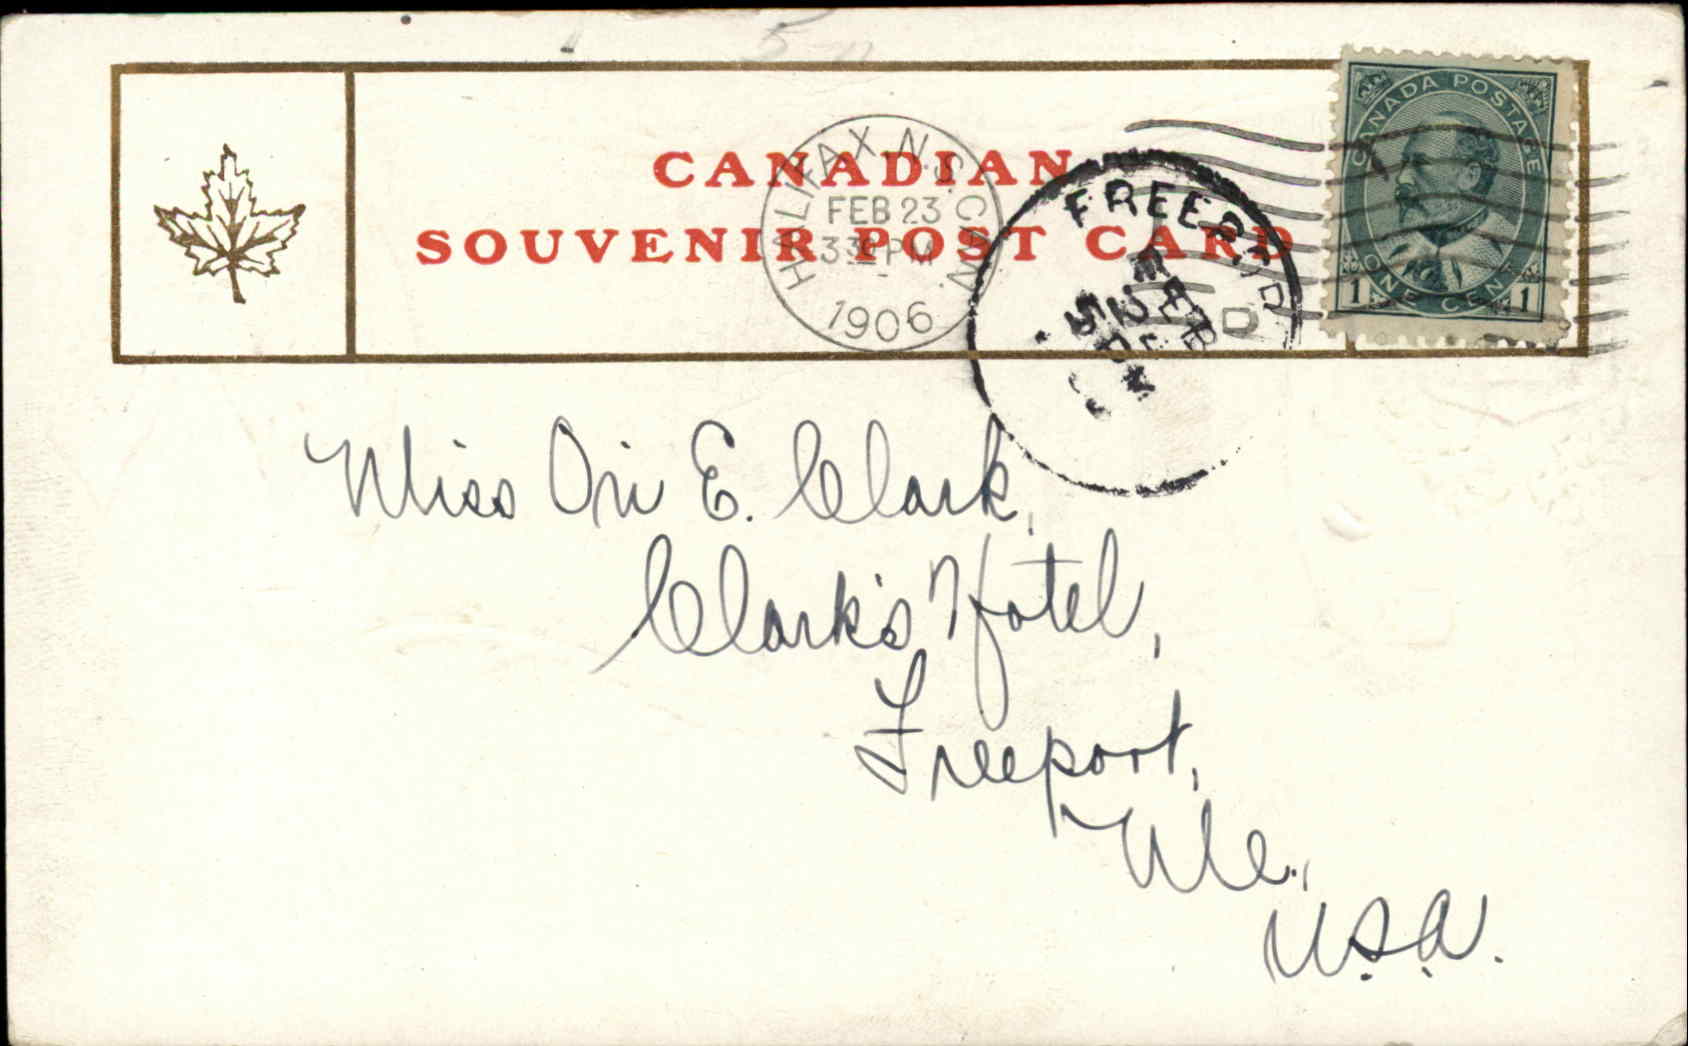 CANADIAN
SOUVENIR POST CARD
HALIFAX N.S. CAN.
FEB 23
330 PM
1906
FREEPORT
FEB
CANADA POSTAGE
1 ONE CENT 1
Miss Ori E. Clark,
Clark's Hotel,
Freeport,
Me.,
U.S.A.